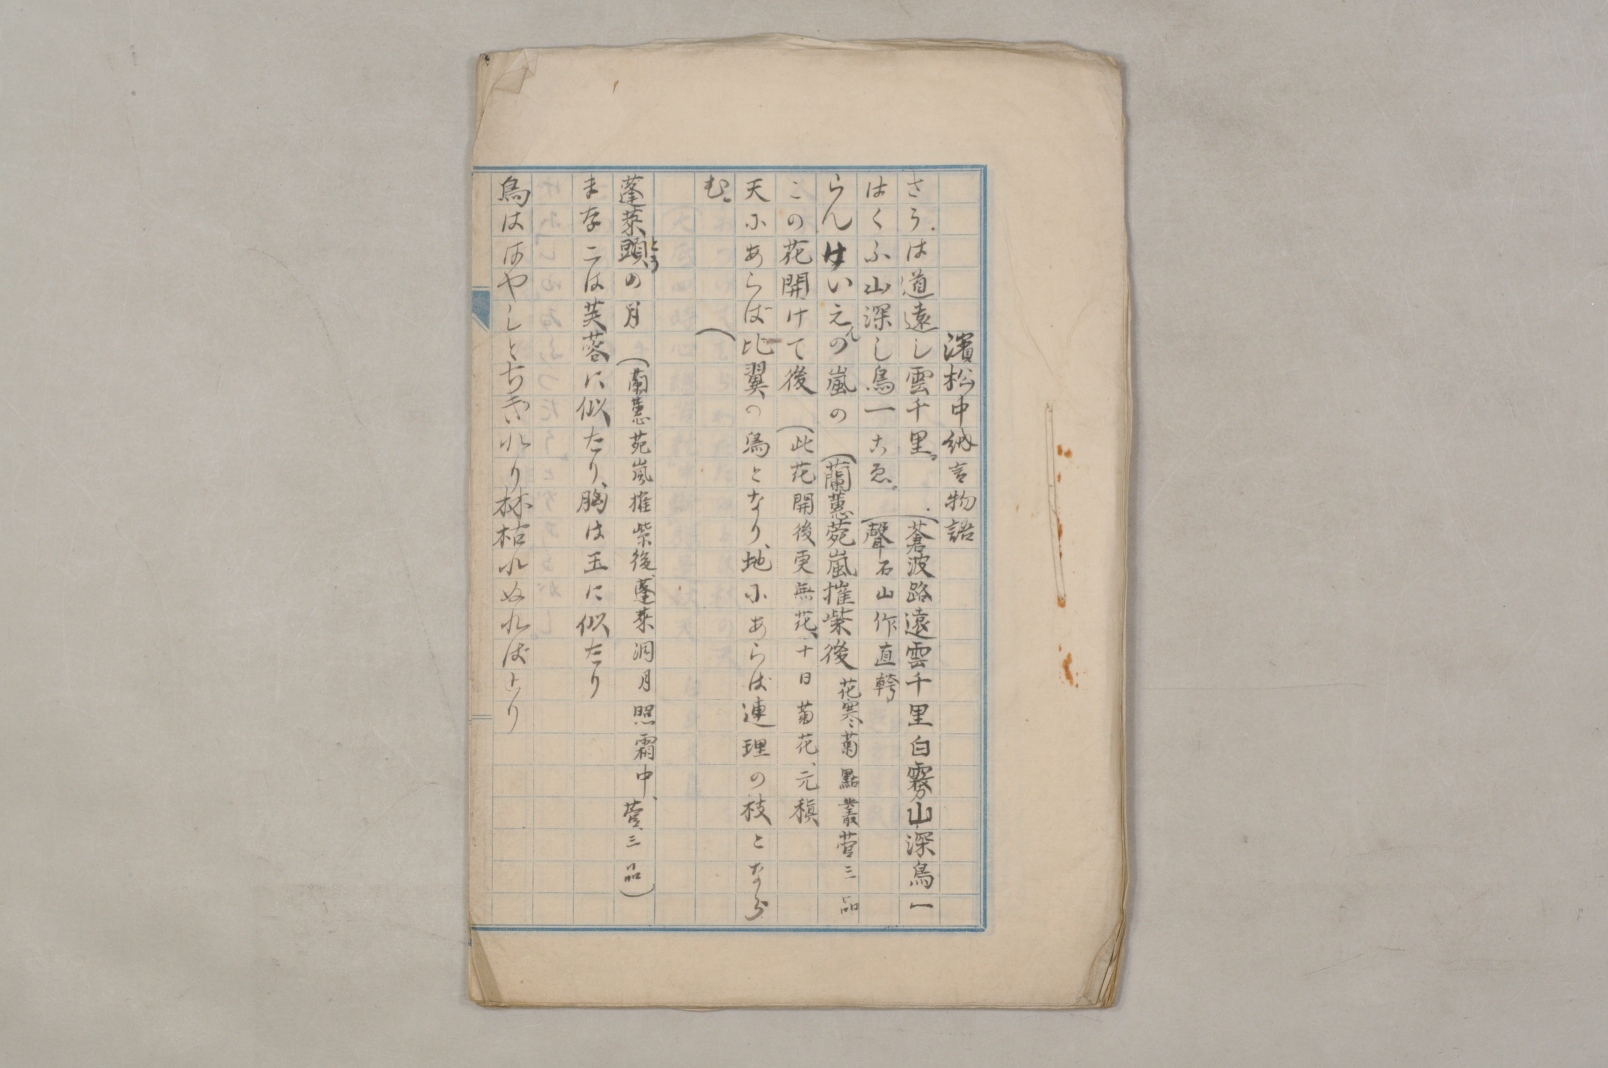 濱松中納言物語
さうは道遠し雲千里。(蒼波路遠雲千里白霧山深鳥一
はくふ山深し鳥一こゑ。(聲石山作直幹
らんけいえんの嵐の(蘭蕙菀嵐摧紫後 花寒菊點叢菅三品
この花開けて後(此花開後更無花、十日菊花、元稹
天にあらば比翼の鳥となり、地にあらば連理の枝となら
む。(
蓬莱頭とうの月(蘭蕙苑嵐摧紫後、蓬莱洞月照霜中、菅三品)
まなこは芙蓉に似たり、胸は玉に似たり
鳥ははやしと
り林枯れぬれば